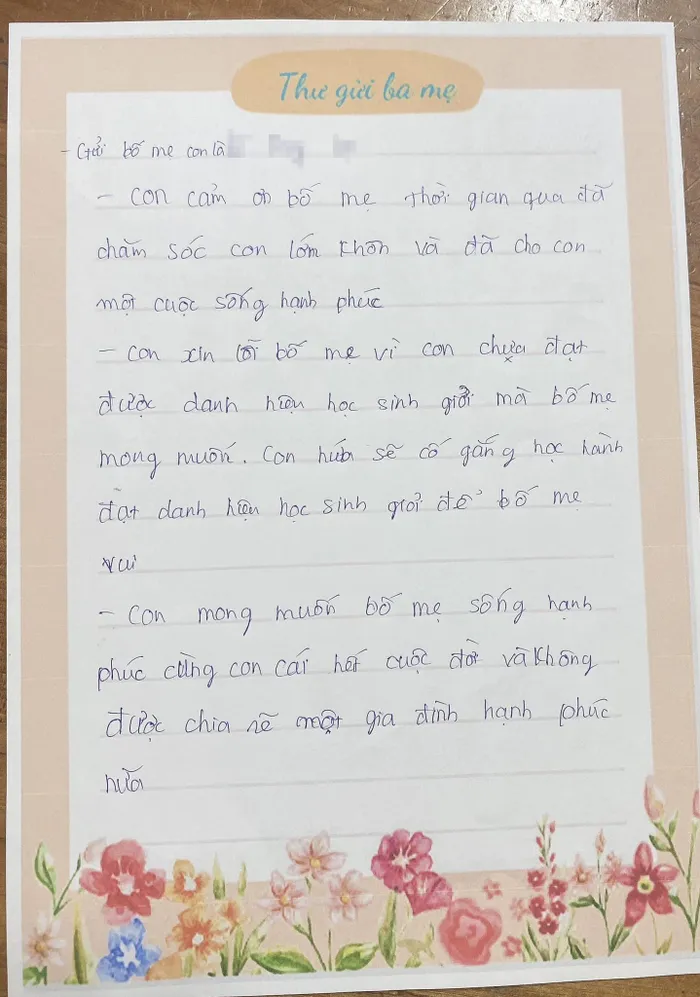 Thư gửi ba mẹ
- Gửi bố mẹ con là
- Con cảm ơn bố mẹ thời gian qua đã
chăm sóc con lớn khôn và đã cho con
một cuộc sống hạnh phúc
- Con xin lỗi bố mẹ vì con chưa đạt
được danh hiệu học sinh giỏi mà bố mẹ
mong muốn. Con hứa sẽ cố gắng học hành
đạt danh hiệu học sinh giỏi để bố mẹ
vui
- Con mong muốn bố mẹ sống hạnh
phúc cùng con cái hết cuộc đời và không
được chia rẽ một gia đình hạnh phúc
nữa